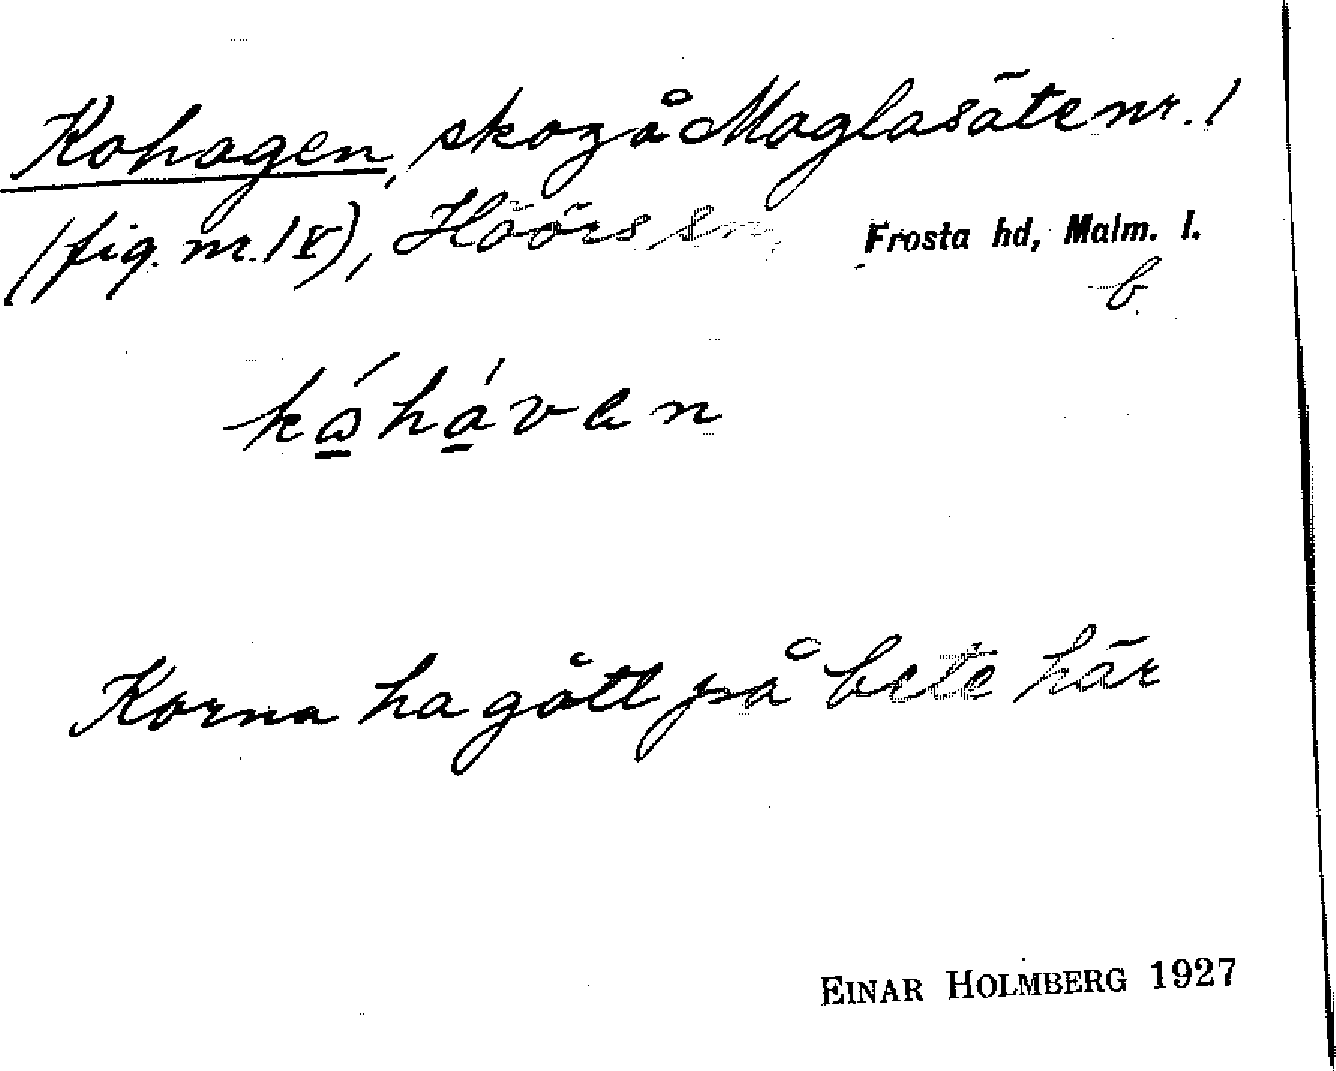 Kohagen, skog å Maglasäte nr. 1
(fig. nr. IV), Höörs sn, Frosta hd, Malm. l.
b.
kåhávan
Korna ha gått på bete här
EINAR HOLMBERG 1927